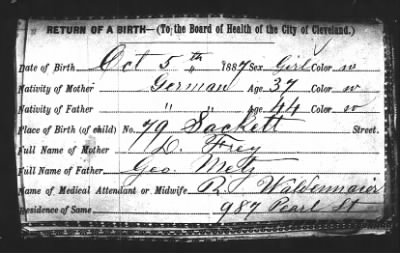 RETURN OF A BIRTH—(To the Board of Health of the City of Cleveland.)
Date of Birth Oct 5th 1887 Sex Girl Color w
Nativity of Mother German Age 37 Color w
Nativity of Father " " age 44 Color w
Place of Birth (of child) No. 79 Sackett Street.
Full Name of Mother D. Frey
Full Name of Father Geo. Metz
Name of Medical Attendant or Midwife R. Waldenmaier
Residence of Same 987 Pearl St